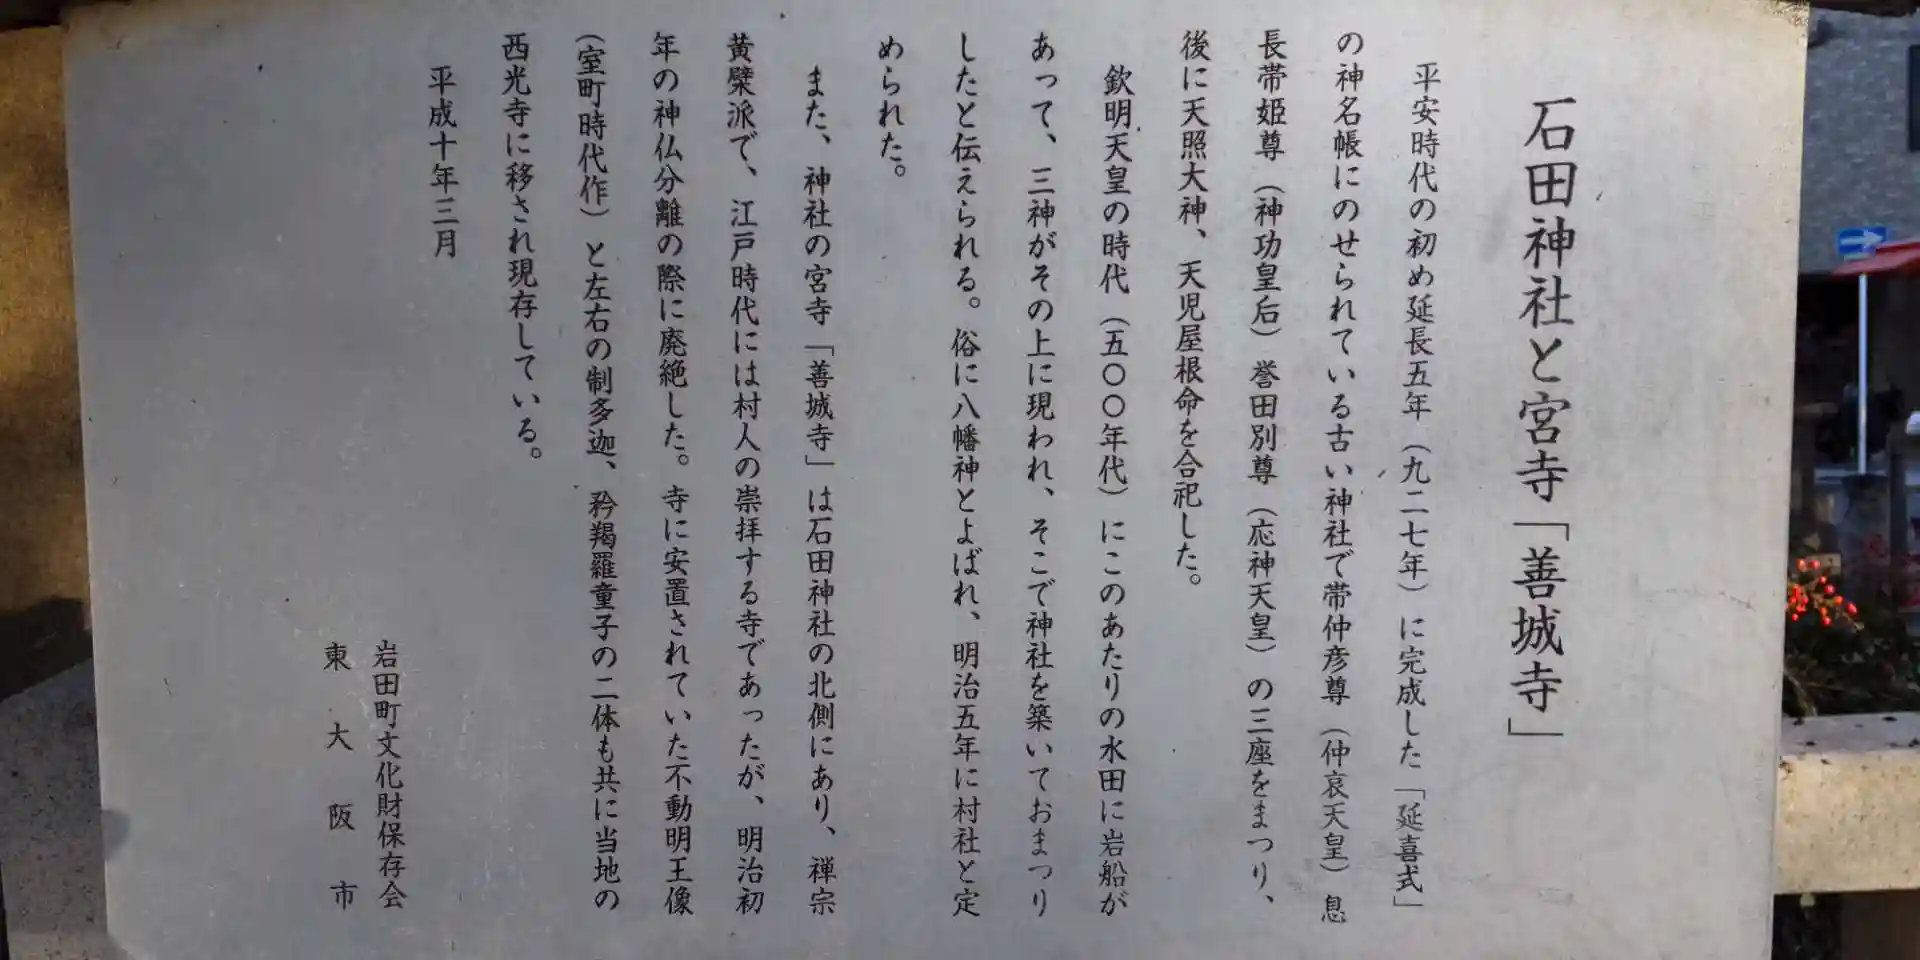 石田神社と宮寺「善城寺」
平安時代の初め延長五年（九二七年）に完成した「延喜式」
の神名帳にのせられている古い神社で帯仲彦尊（仲哀天皇）息
長帯姫尊（神功皇后）誉田別尊（応神天皇）の三座をまつり、
後に天照大神、天児屋根命を合祀した。
欽明天皇の時代（五〇〇年代）にこのあたりの水田に岩船が
あって、三神がその上に現われ、そこで神社を築いておまつり
したと伝えられる。俗に八幡神とよばれ、明治五年に村社と定
められた。
また、神社の宮寺「善城寺」は石田神社の北側にあり、禅宗
黄檗派で、江戸時代には村人の崇拝する寺であったが、明治初
年の神仏分離の際に廃絶した。寺に安置されていた不動明王像
（室町時代作）と左右の制多迦、矜羯羅童子の二体も共に当地の
西光寺に移され現存している。
平成十年三月
岩田町文化財保存会
東大阪市